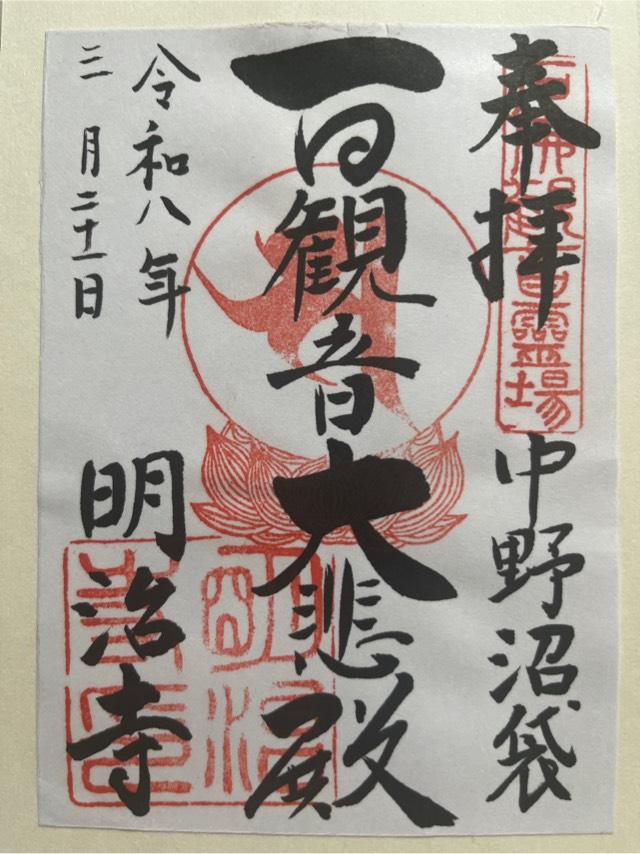 奉拝
佛觀音靈場
中野沼袋
百観音大悲殿
令和八年
三月二十一日
明治寺
明治寺印